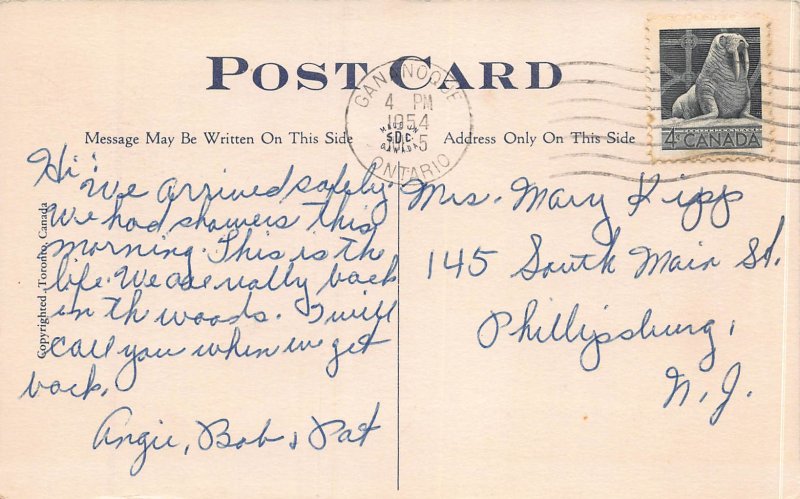 POST CARD
GANANOQUE
4 PM
1954
ONTARIO
MADE IN
S.D.C.
CANADA
4¢ CANADA
Message May Be Written On This Side
Address Only On This Side
Copyrighted, Toronto, Canada
Hi!
We arrived safely.
We had showers this
morning. This is th
life. We are really back
in th woods. I will
call you when we get
back.
Angie, Bob & Pat
Mrs. Mary Kipp
145 South Main St.
Phillipsburg,
N.J.